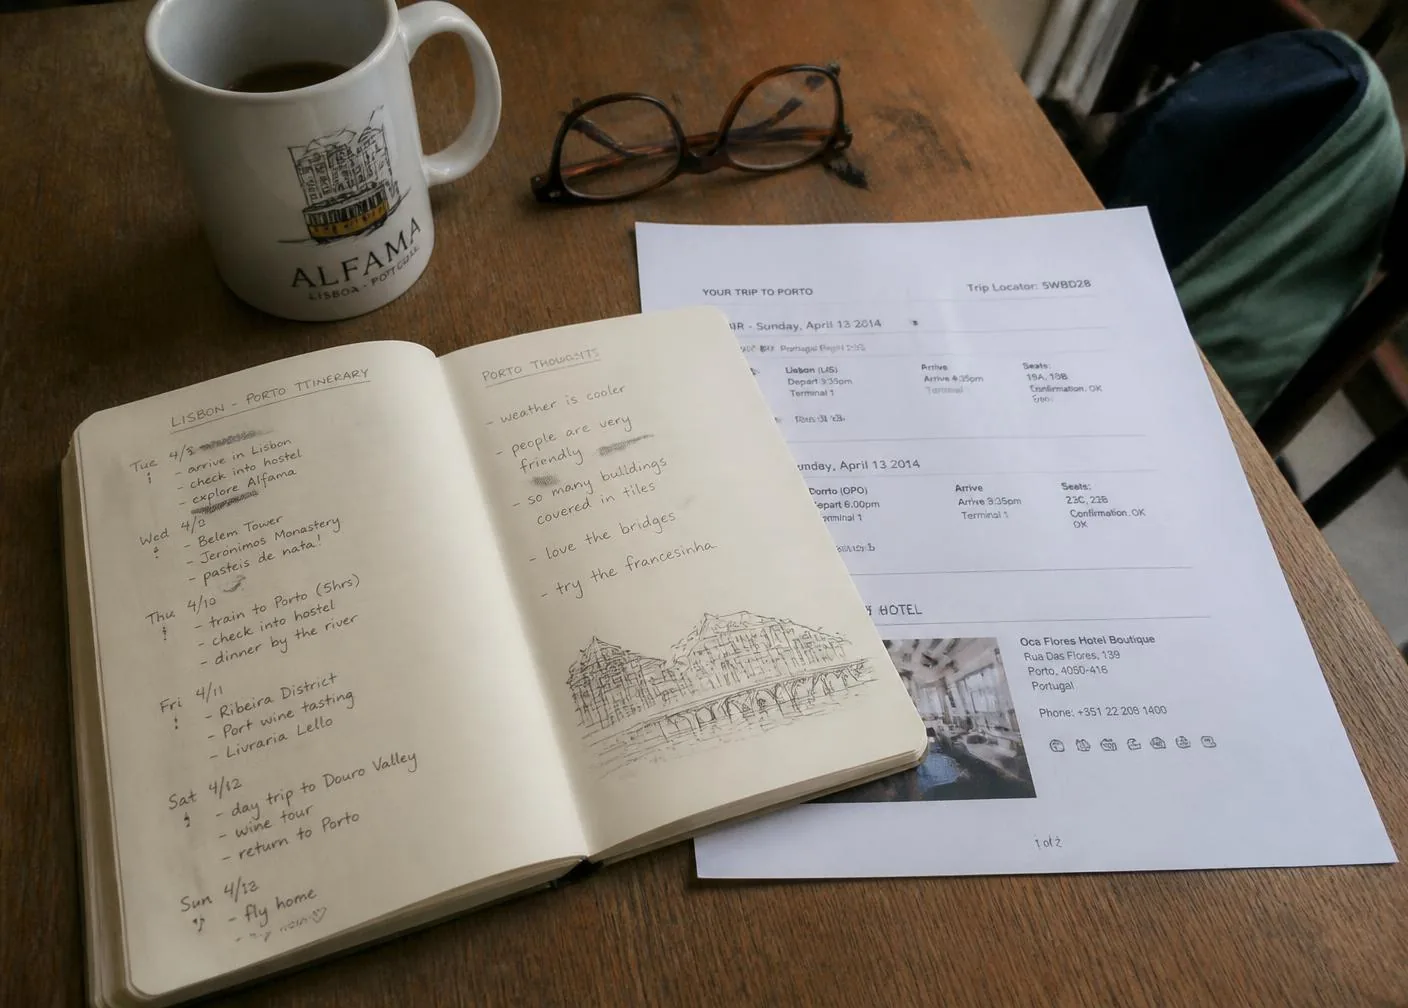 ALFAMA
LISBOA - PORTUGAL
LISBON - PORTO TTINERARY
Tue 4/8
- arrive in Lisbon
- check into hostel
- explore Alfama
Wed 4/9
- Belem Tower
- Jeronimos Monastery
- pasteis de nata!
Thu 4/10
- train to Porto (5hrs)
- check into hostel
- dinner by the river
Fri 4/11
- Ribeira District
- Port wine tasting
- Livraria Lello
Sat 4/12
- day trip to Douro Valley
- wine tour
- return to Porto
Sun 4/13
- fly home
PORTO THOUGHTS
- weather is cooler
- people are very
friendly
- so many buildings
covered in tiles
- love the bridges
- try the francesinha
YOUR TRIP TO PORTO
Trip Locator: 5WBD28
IR - Sunday, April 13 2014
Lisbon (LIS)
Depart 3:35pm
Terminal 1
Arrive
Arrive 4:35pm
Terminal
Seats:
19A, 19B
Confirmation. OK
unday, April 13 2014
Porto (OPO)
epart 6.00pm
rminal 1
Arrive
Arrive 3:35pm
Terminal 1
Seats:
23C, 23B
Confirmation. OK
OK
HOTEL
Oca Flores Hotel Boutique
Rua Das Flores, 139
Porto, 4050-416
Portugal
Phone: +351 22 208 1400
1 of 2